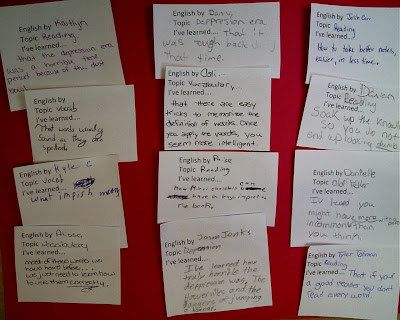 English by Kaitlyn
Topic Reading
I've learned...
that the depression era
was a horrible time
period because of the dust
bowl
English by
Topic Vocab
I've learned...
That words usually
sound as they are
spelled.
English by Kyle C
Topic Vocab
I've learned...
what impish means
English by
Topic Vocabulary
I've learned...
most of these words we
have heard before...
we just need to learn how
to use them correctly.
English by Danny
Topic Depression era
I've learned... that it
was rough back in
that time.
English by
Topic Vocabulary
I've learned...
that there are easy
tricks to memorise the
definition of words. Once
you apply the words, you
seem more intelligent.
English by
Topic Reading
I've learned...
How Minor characters
have a large importance
The book.
English by
Topic Depression
I've learned...
I've learned how
truly horrible the
depression was. The
Hoovervilles and the
Bankers jumping
English by Josh
Topic Reading
I've learned...
How to take better notes,
easier, in less time...
English by
Topic Reading
I've learned...
Soak up the knowledge
So you do not
end up looking dumb.
English by Danielle
Topic Old
I've learned...
I've heard you
might have more
in common than
you think.
English by Tyler
Topic Reading
I've learned... That if your
a good reader you dont
read every word.